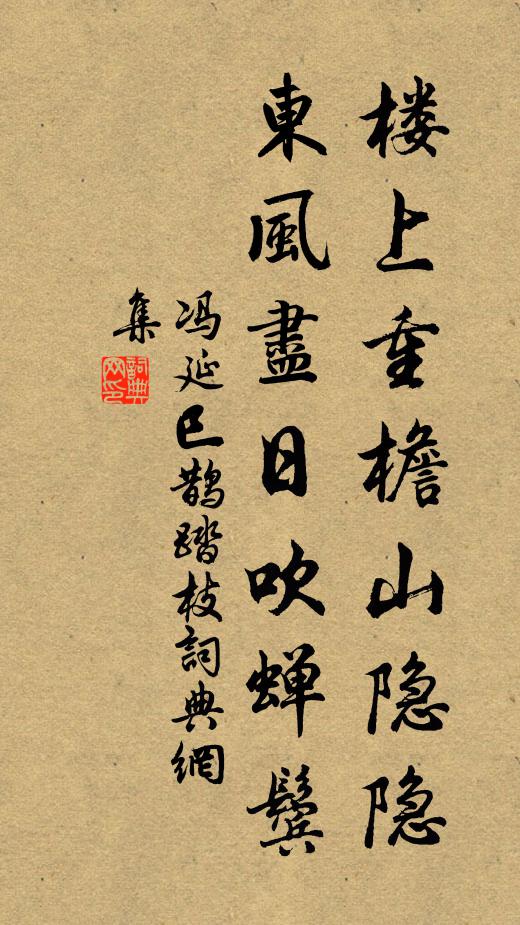 楼上重檐山隐隐
東風盡日吹蝉鬓
冯延巳鹊踏枝詞典網
集
詞典
网印